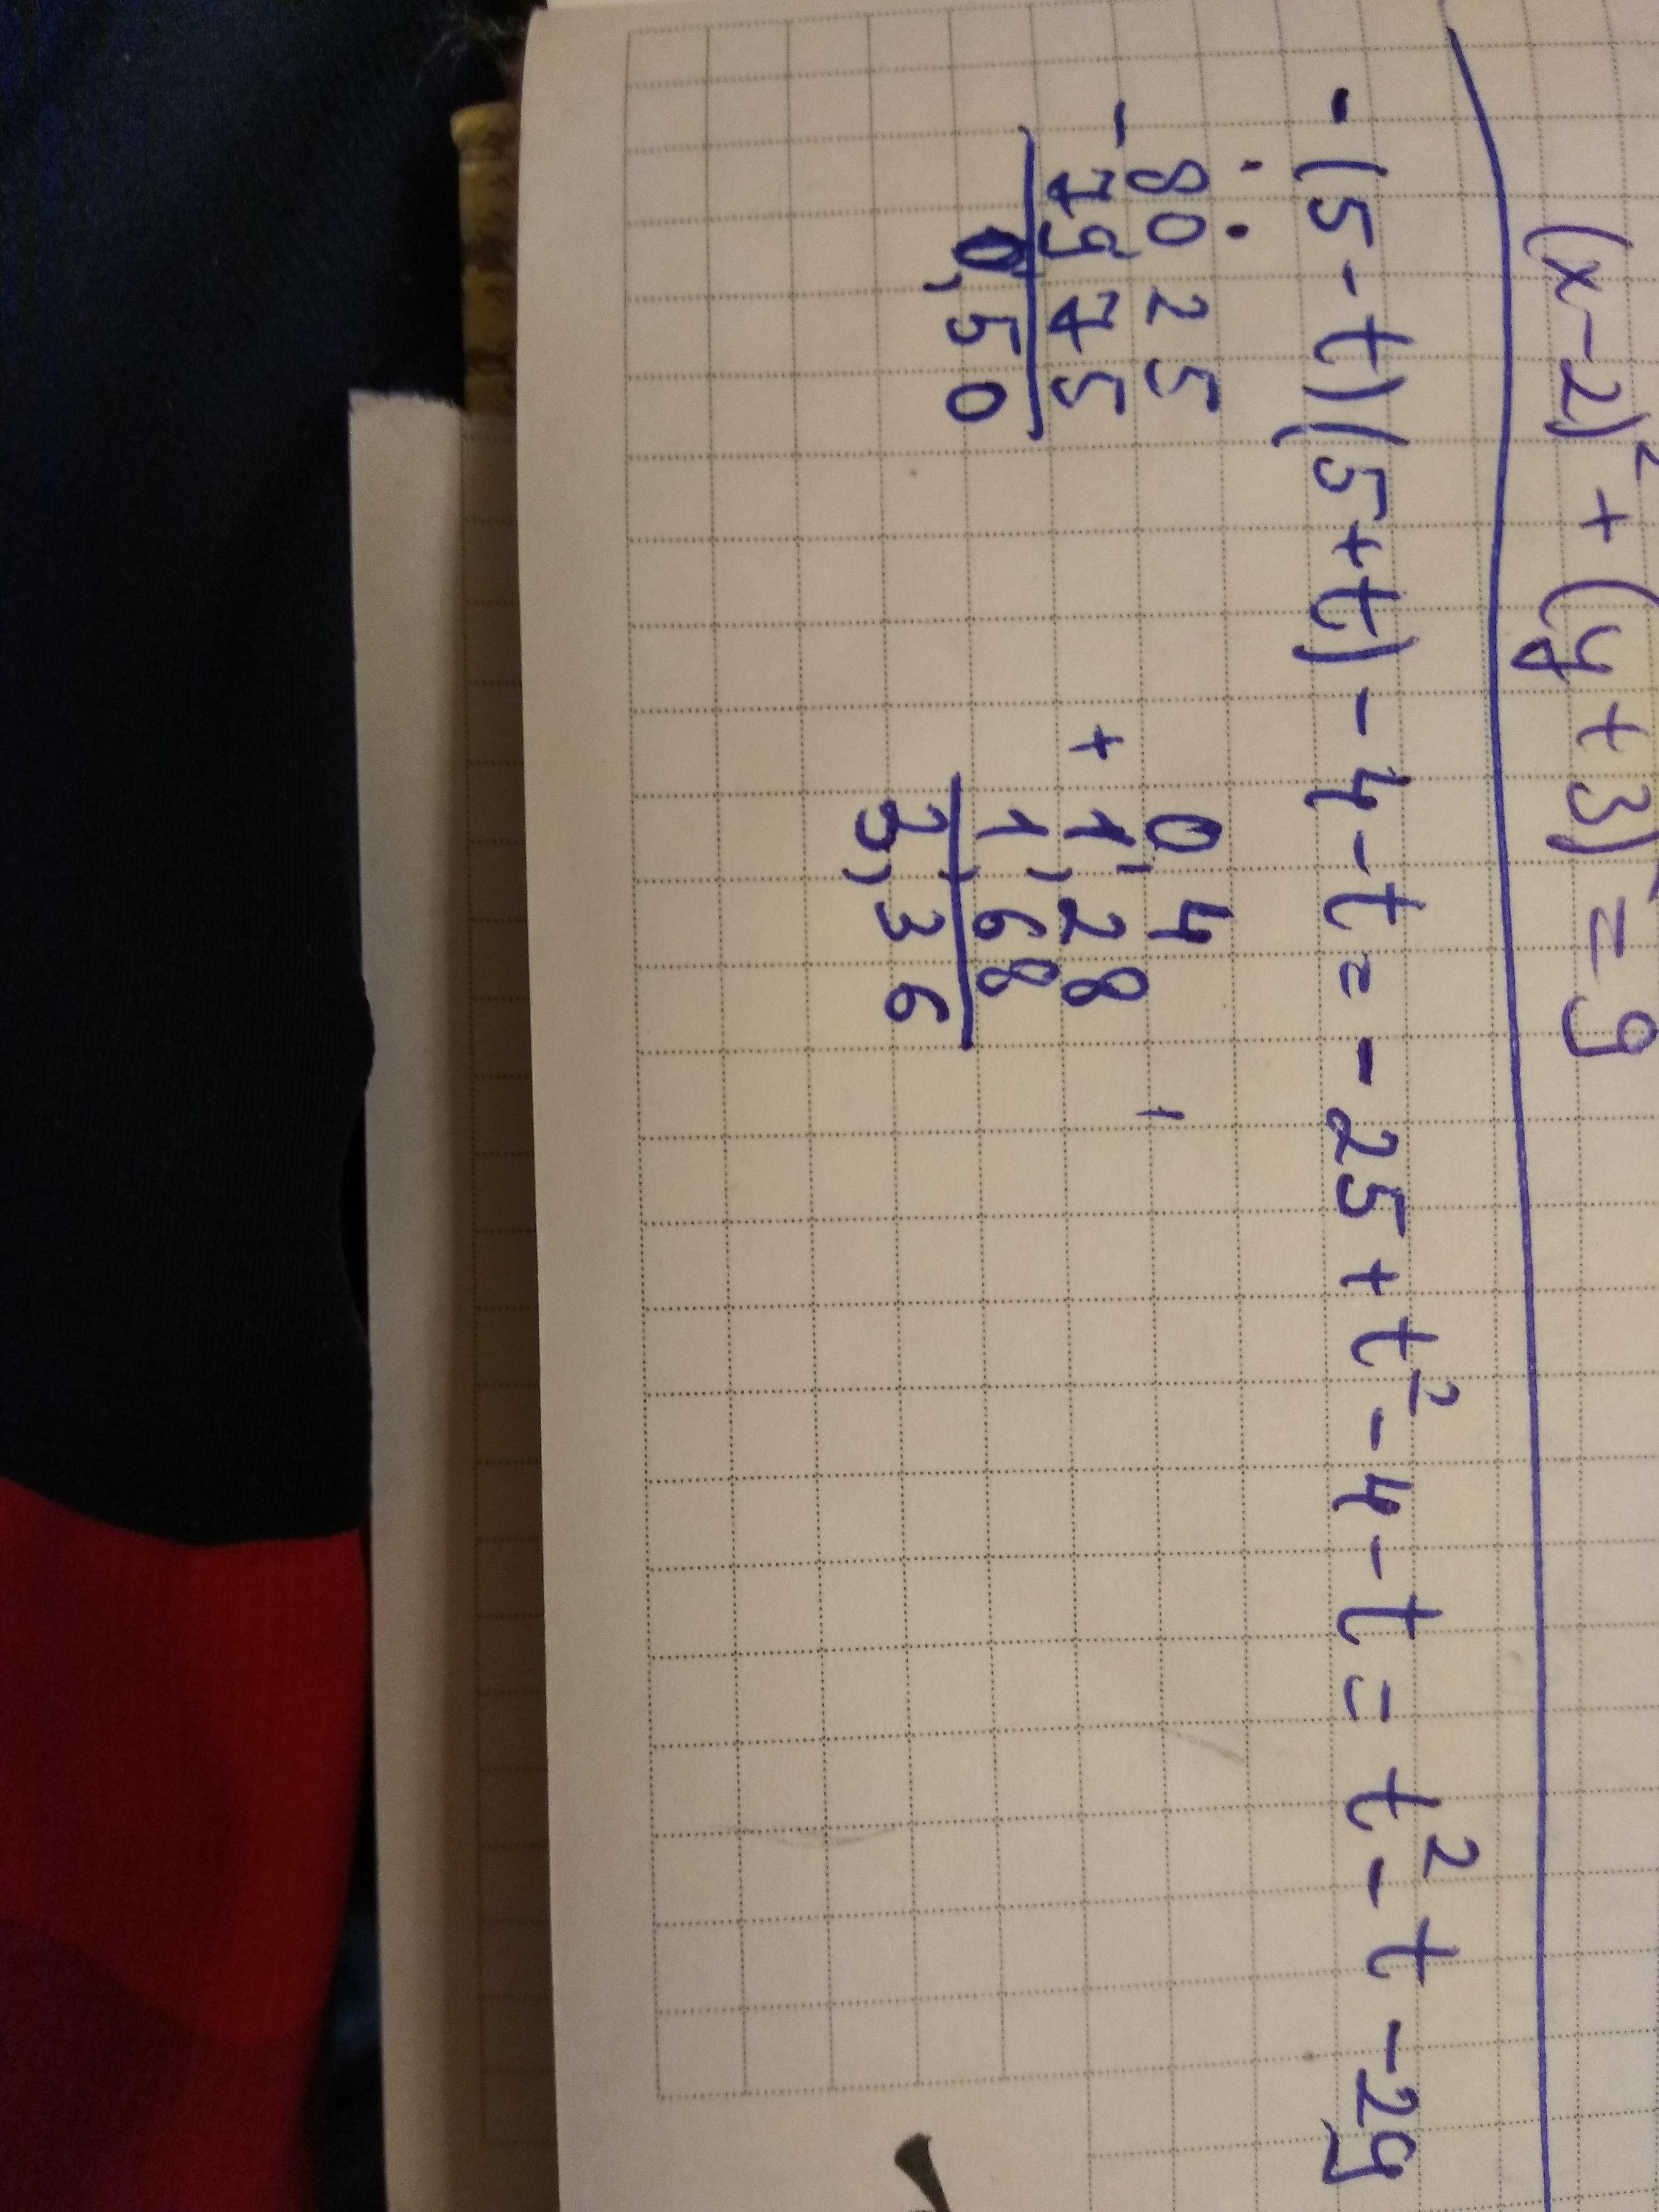 (x-2)² + (y+3)² = 9
4
-(5-t)(5+t)-4-t=-25+t²-4-t=t²-t-29
- 80 25
79 75
0,50
0,4
+ 1,28
1,68
3,36